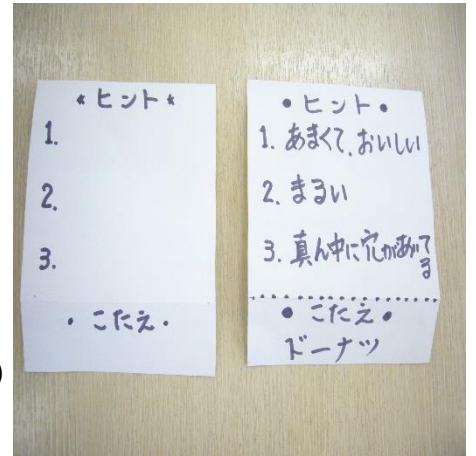 * ヒント *
1.
2.
3.
・こたえ・
● ヒント ●
1. あまくて、おいしい
2. まるい
3. 真ん中に穴があいて
る
● こたえ ●
ドーナツ
)